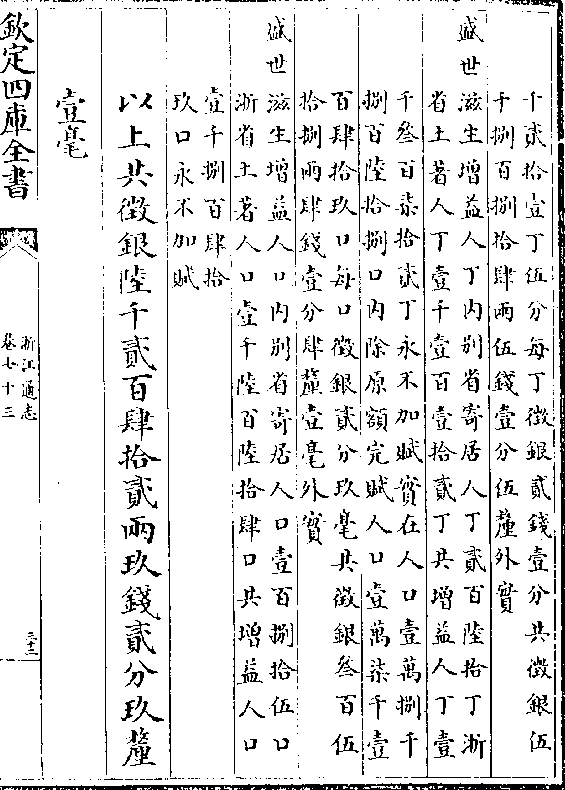 千貳拾壹丁伍分每丁徵銀貳錢壹分共徵銀伍
千捌百捌拾肆兩伍錢壹分伍釐外實
盛世滋生增益人丁内别省寄居人丁貳百陸拾丁浙
省土著人丁壹千壹百壹拾貳丁共增益人丁壹
千叁百柒拾貳丁永不加賦實在人口壹萬捌千
捌百陸拾捌口内除原額完賦人口壹萬柒千壹
百肆拾玖口每口徵銀貳分玖毫共徵銀叁百伍
拾捌兩肆錢壹分肆釐壹毫外實
盛世滋生增益人口内别省寄居人口壹百捌拾伍口
浙省土著人口壹千陸百陸拾肆口共增益人口
壹千捌百肆拾
玖口永不加賦
以上共徵銀陸千貳百肆拾貳兩玖錢貳分玖釐
壹毫
欽定四庫全書
浙江通志
卷七十三
三十二